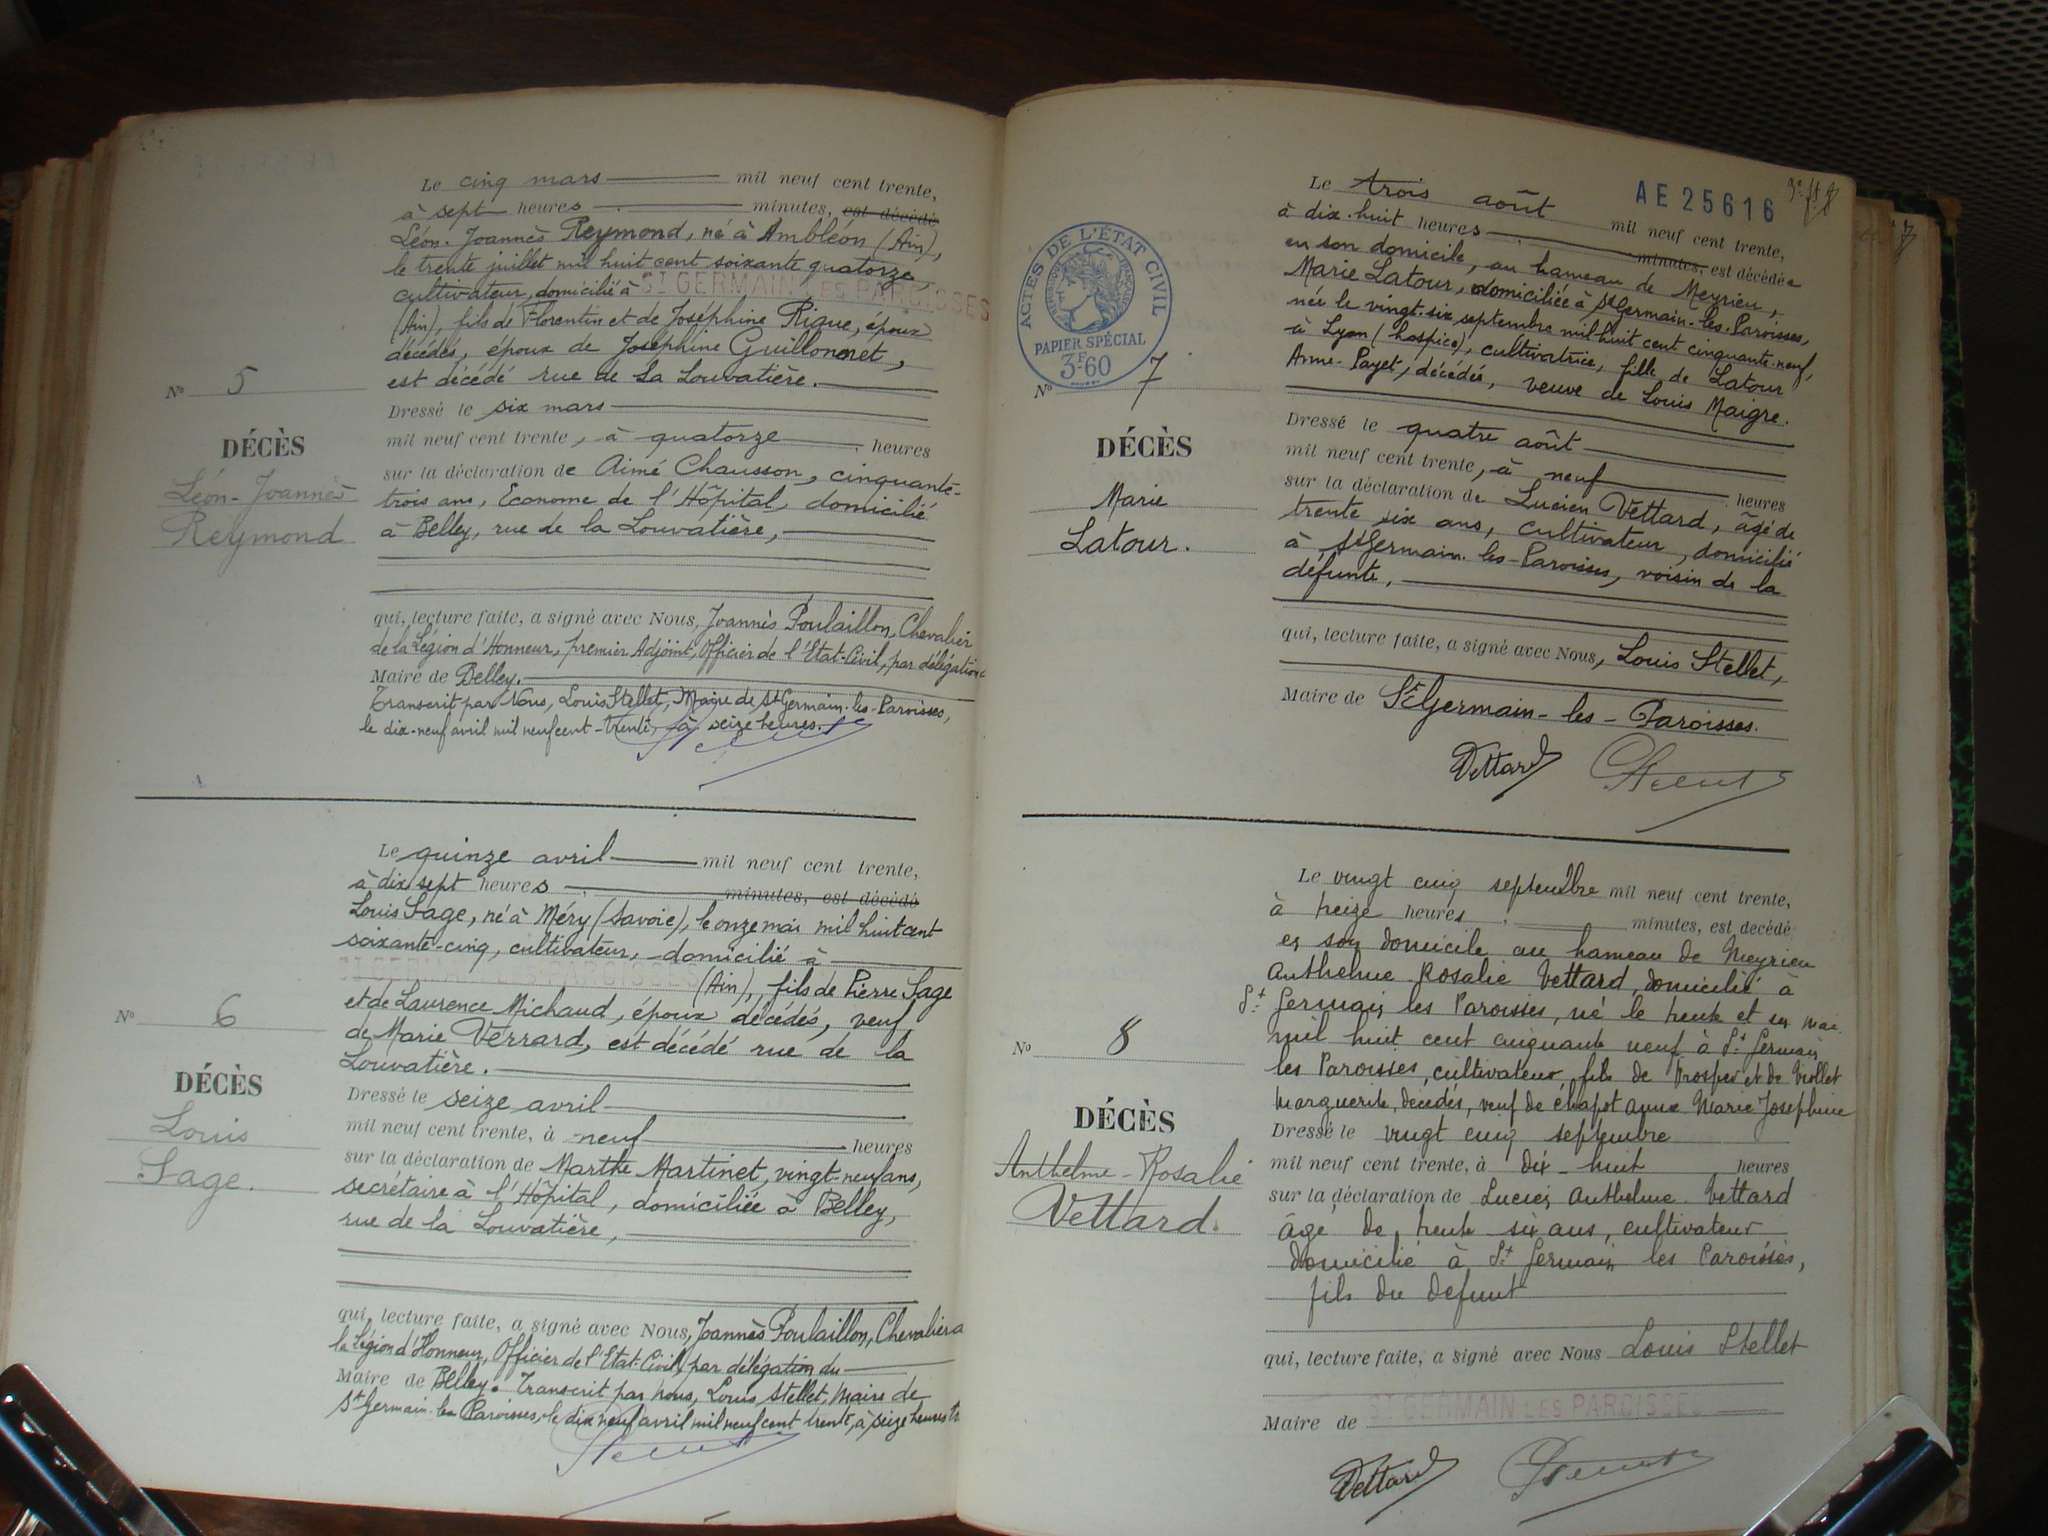 Le cinq mars mil neuf cent trente,
à sept heures minutes, est décédé
Léon-Joannès Reymond, né à Ambléon (Ain),
le trente juillet mil huit cent soixante quatorze,
cultivateur, domicilié à ST GERMAIN LES PAROISSES
(Ain), fils de Florentin et de Joséphine Rigue, époux
décédés, époux de Joséphine Guillonnet,
est décédé rue de la Louvatière.
No 5
DÉCÈS
Léon-Joannès
Reymond
Dressé le six mars
mil neuf cent trente, à quatorze heures
sur la déclaration de Aimé Chausson, cinquante-
trois ans, Econome de l'Hôpital, domicilié
à Belley, rue de la Louvatière,
qui, lecture faite, a signé avec Nous, Joannès Poulaillon, Chevalier
de la Légion d'Honneur, premier Adjoint, Officier de l'Etat-Civil, par délégation
Maire de Belley.
Transcrit par Nous, Louis Stellet, Maire de St Germain-les-Paroisses,
le dix-neuf avril mil neuf cent-trente, à seize heures.
Le quinze avril mil neuf cent trente,
à dix sept heures minutes, est décédé
Louis Sage, né à Méry (Savoie), le onze mai mil huit cent
soixante-cinq, cultivateur, domicilié à
ST GERMAIN LES PAROISSES (Ain), fils de Pierre Sage
et de Laurence Michaud, époux décédés, veuf
de Marie Verrard, est décédé rue de la
Louvatière.
No 6
DÉCÈS
Louis
Sage.
Dressé le seize avril
mil neuf cent trente, à neuf heures
sur la déclaration de Marthe Martinet, vingt-neuf ans,
secrétaire à l'Hôpital, domiciliée à Belley,
rue de la Louvatière,
qui, lecture faite, a signé avec Nous, Joannès Poulaillon, Chevalier
la Légion d'Honneur, Officier de l'Etat-Civil, par délégation du
Maire de Belley. Transcrit par nous, Louis Stellet, Maire de
St Germain-les Paroisses, le dix neuf avril mil neuf cent trente, à seize heures
AE 25616
ACTES DE L'ÉTAT CIVIL
PAPIER SPÉCIAL
3F60
Le trois août mil neuf cent trente,
à dix-huit heures minutes, est décédée
en son domicile, au hameau de Meyrieu,
Marie Latour, domiciliée à St Germain-les-Paroisses,
née le vingt-six septembre mil huit cent cinquante-neuf,
à Lyon (hospice), cultivatrice, fille de Latour
Anne-Payet, décédés, veuve de Louis Maigre.
No 7
DÉCÈS
Marie
Latour.
Dressé le quatre août
mil neuf cent trente, à neuf heures
sur la déclaration de Lucien Vettard, âgé de
trente six ans, cultivateur, domicilié
à St Germain-les-Paroisses, voisin de la
défunte,
qui, lecture faite, a signé avec Nous, Louis Stellet,
Maire de St Germain-les-Paroisses.
Vettard
Le vingt cinq septembre mil neuf cent trente,
à treize heures minutes, est decédé
en son domicile au hameau de Meyrieu
Anthelme Rosalie Vettard, domicilié à
St Germain les Paroisses, né le trente et un mai
mil huit cent cinquante neuf à St Germain
les Paroisses, cultivateur, fils de Prosper et de Viollet
Marguerite, decédés, veuf de Chapot Anne Marie Josephine
No 8
DÉCÈS
Anthelme-Rosalie
Vettard.
Dressé le vingt cinq septembre
mil neuf cent trente, à dix-huit heures
sur la déclaration de Lucien Anthelme Vettard
âgé de trente six ans, cultivateur
domicilié à St Germain les Paroisses,
fils du defunt
qui, lecture faite, a signé avec Nous Louis Stellet
Maire de ST GERMAIN LES PAROISSES
Vettard